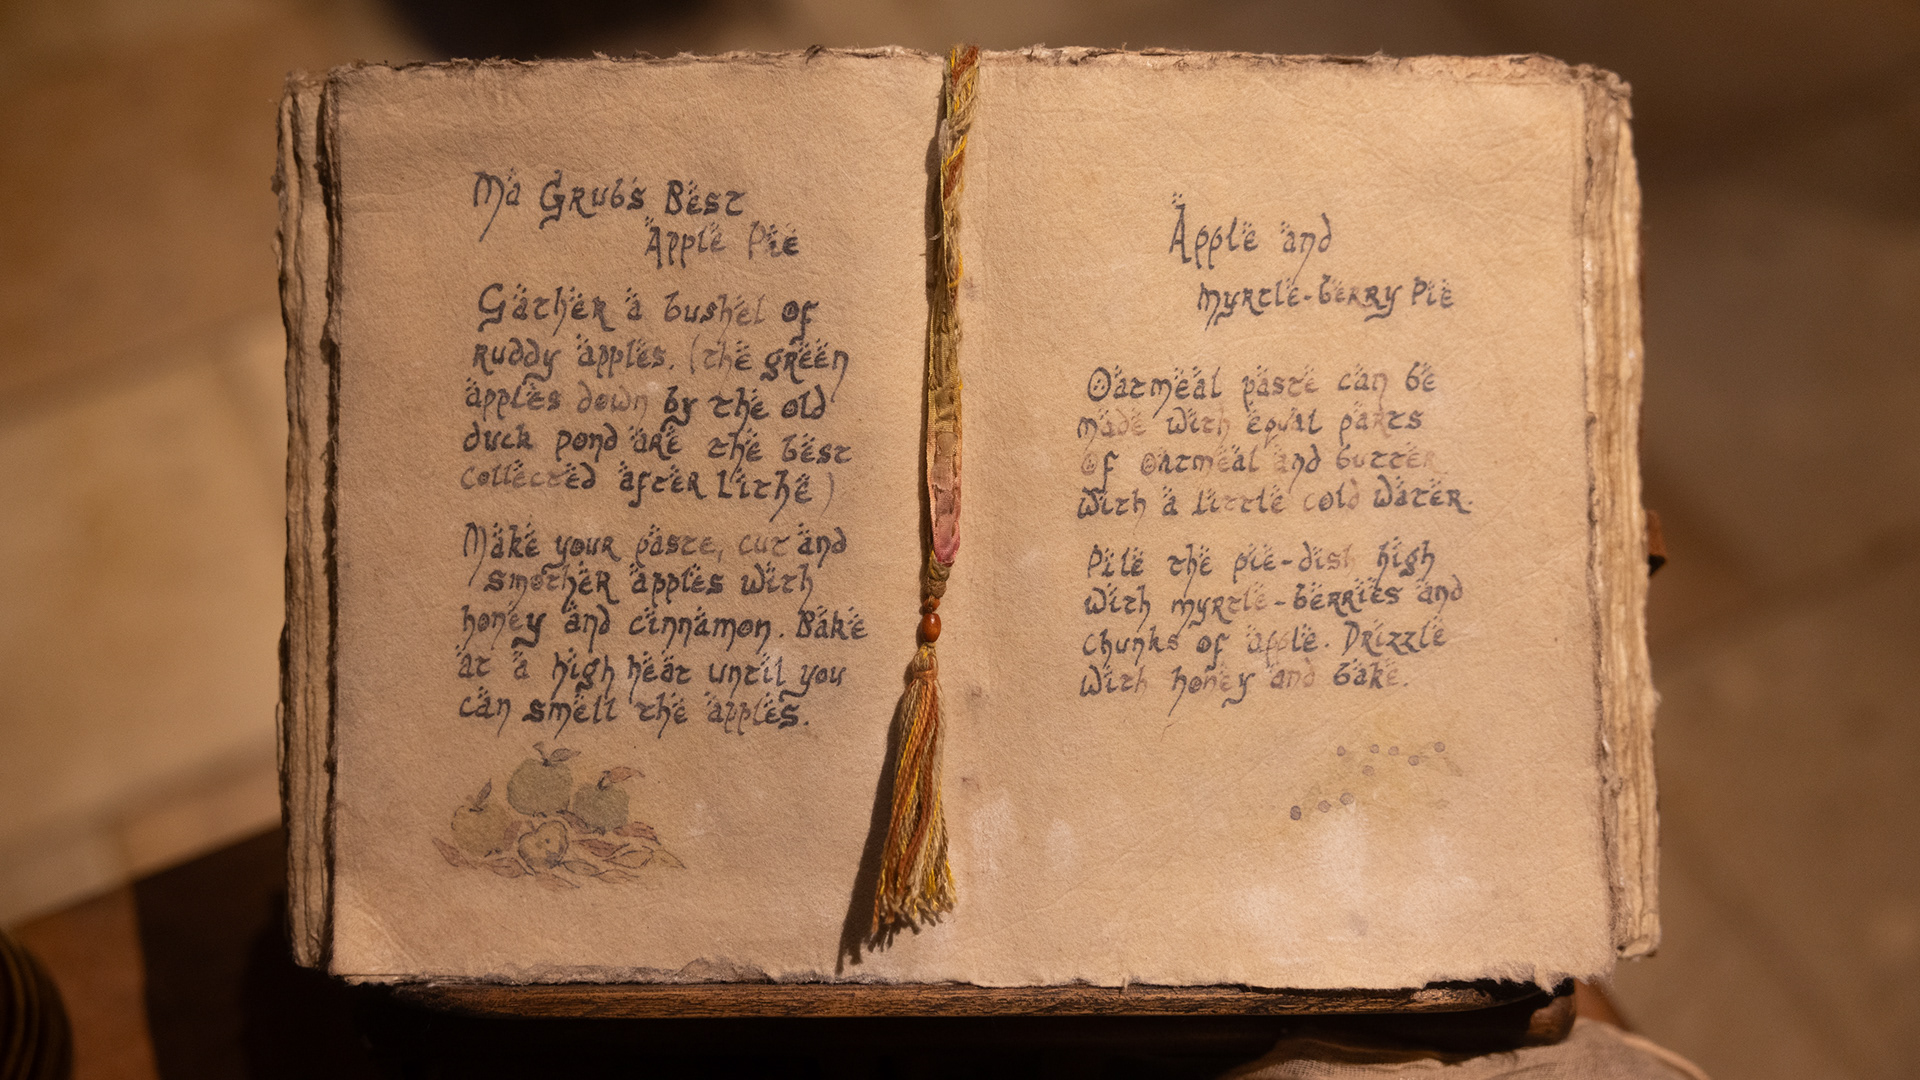 Ma Grubs Best
Apple Pie
Gather a bushel of
ruddy apples. (the green
apples down by the old
duck pond are the best
collected after Lithe)
Make your paste, cut and
smother apples with
honey and cinnamon. Bake
at a high heat until you
can smell the apples.
Apple and
Myrtle-berry Pie
Oatmeal paste can be
made with equal parts
of oatmeal and butter
with a little cold water.
Pile the pie-dish high
with myrtle-berries and
chunks of apple. Drizzle
with honey and bake.